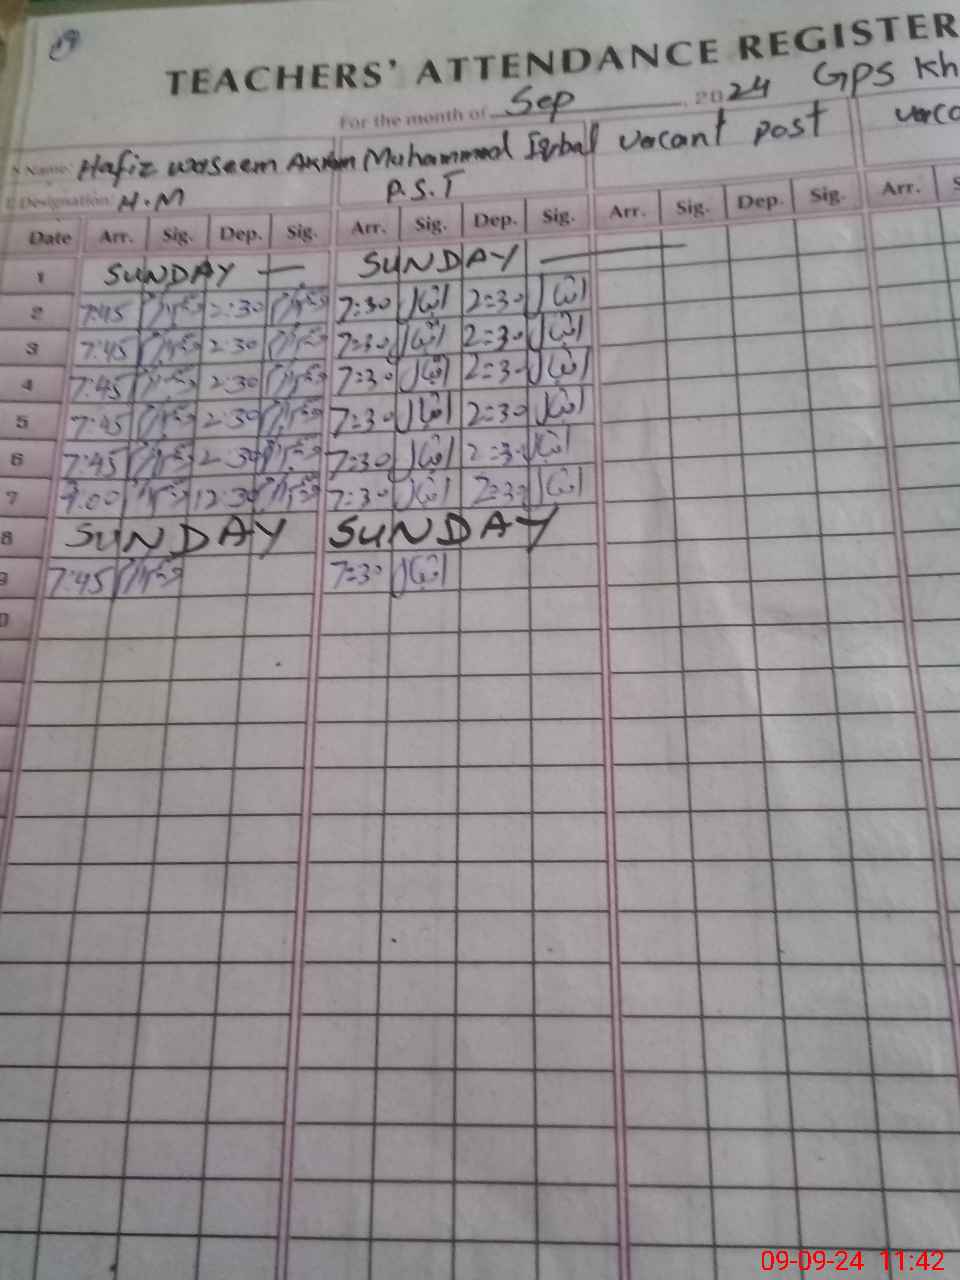 19
TEACHERS' ATTENDANCE REGISTER
For the month of Sep, 2024 GPS Kh
Name: Hafiz waseem Akram Muhammad Iqbal vacant post vaca
Designation: H.M P.S.T
Date Arr. Sig. Dep. Sig. Arr. Sig. Dep. Sig. Arr. Sig. Dep. Sig. Arr. S
1 SUNDAY — SUNDAY —
2 7:45 2:30 7:30 اقبال 2:30 اقبال
3 7:45 2:30 7:30 اقبال 2:30 اقبال
4 7:45 2:30 7:30 اقبال 2:30 اقبال
5 7:45 2:30 7:30 اقبال 2:30 اقبال
6 7:45 2:30 7:30 اقبال 2:30 اقبال
7 12:30 7:30 اقبال 2:30 اقبال
8 SUNDAY SUNDAY
9 7:45 7:30 اقبال
0
09-09-24 11:42